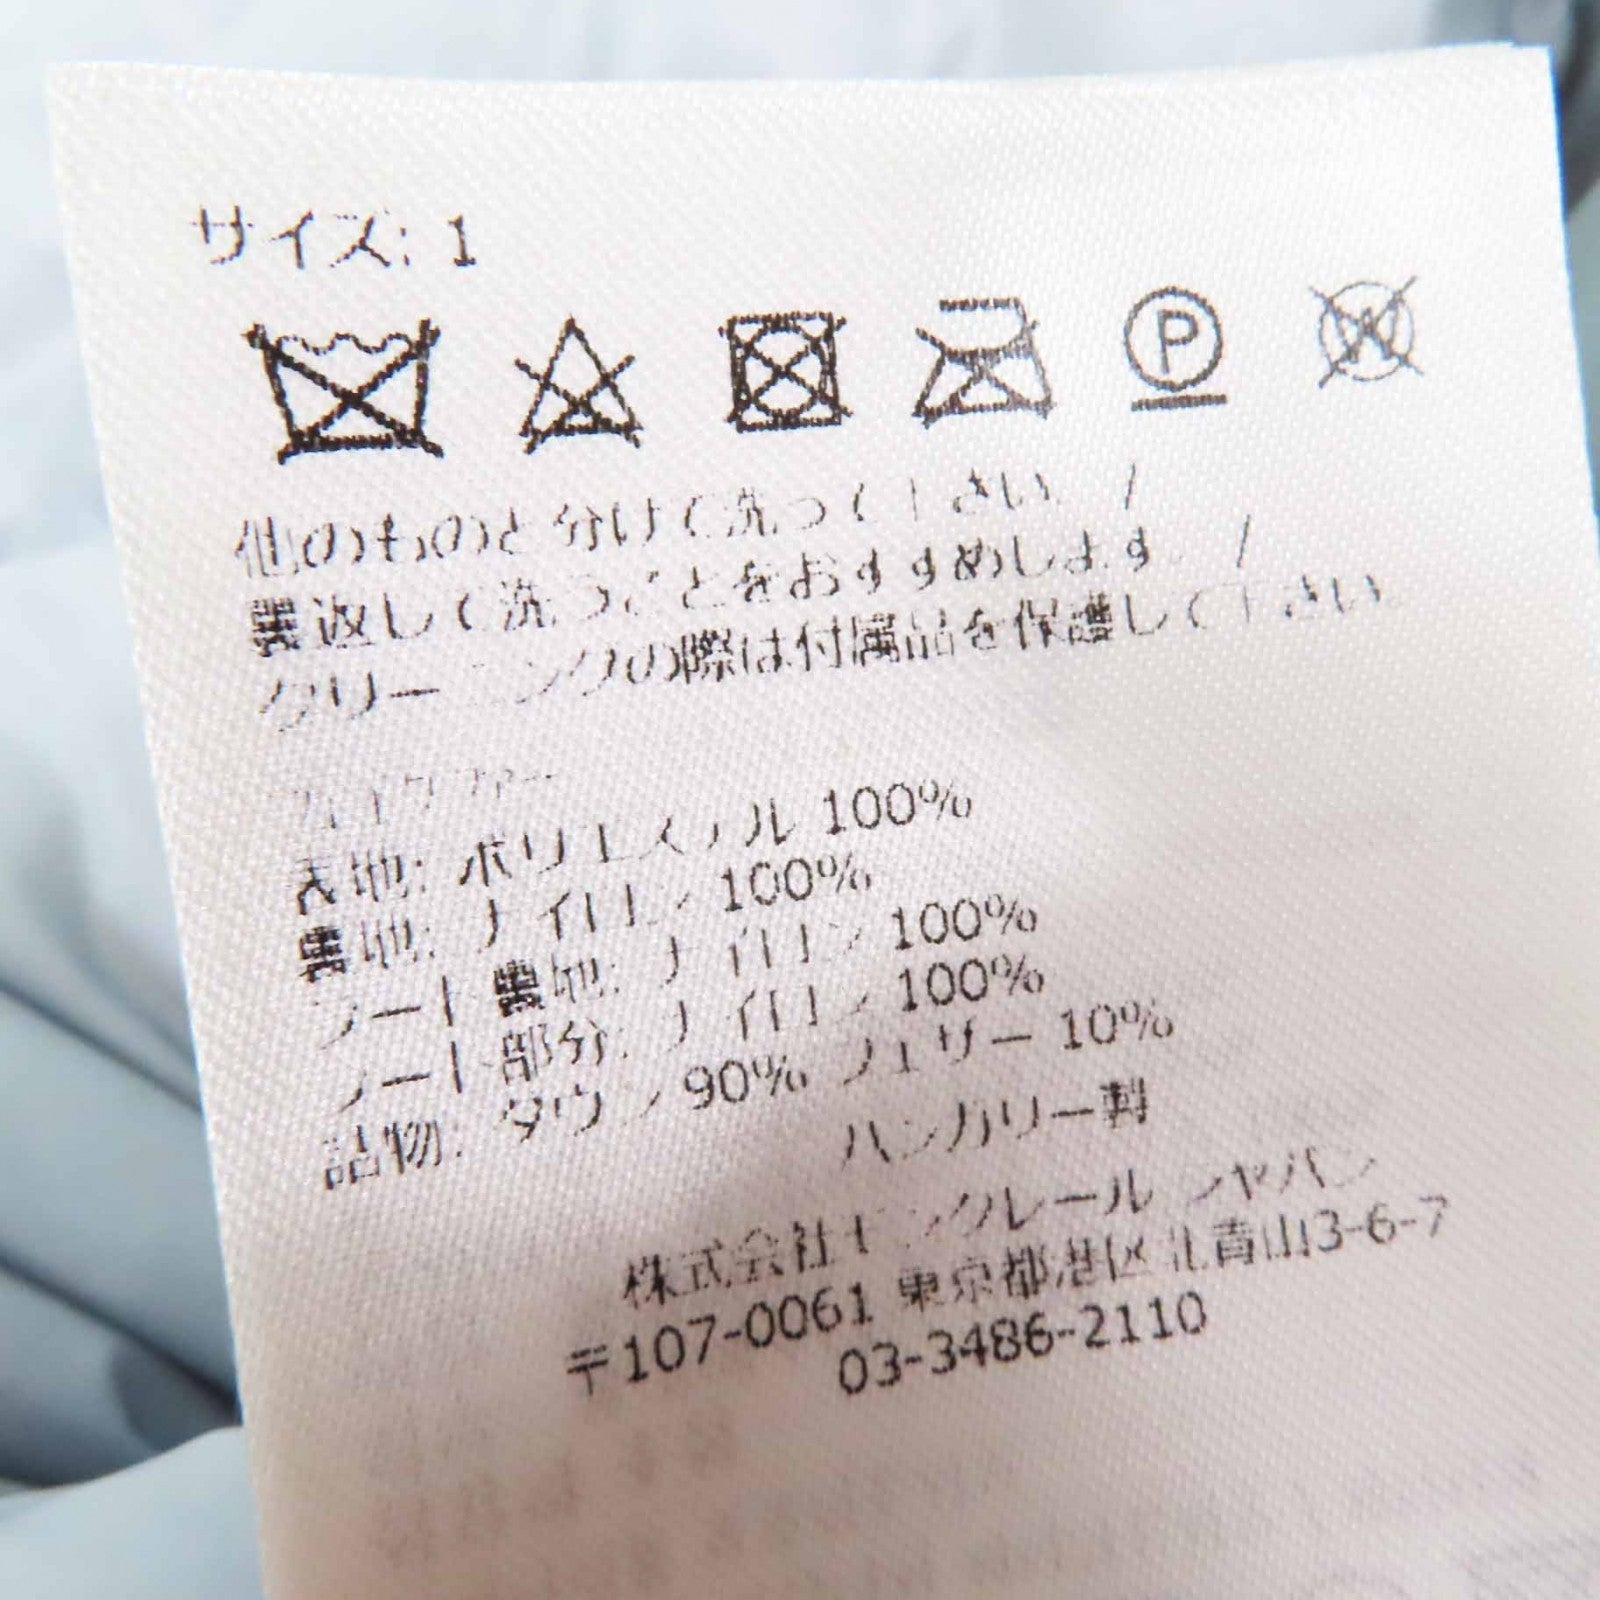 サイズ: 1
P W
他のものと分けて洗って下さい。 /
裏返して洗うことをおすすめします。 /
クリーニングの際は付属品を保護して下さい。
フェイクファー
表地: ポリエステル 100%
裏地: ナイロン 100%
フード裏地: ナイロン 100%
フード部分: ナイロン 100%
詰物: ダウン 90% フェザー 10%
ハンガリー製
株式会社モンクレール ジャパン
〒107-0061 東京都港区北青山3-6-7
03-3486-2110